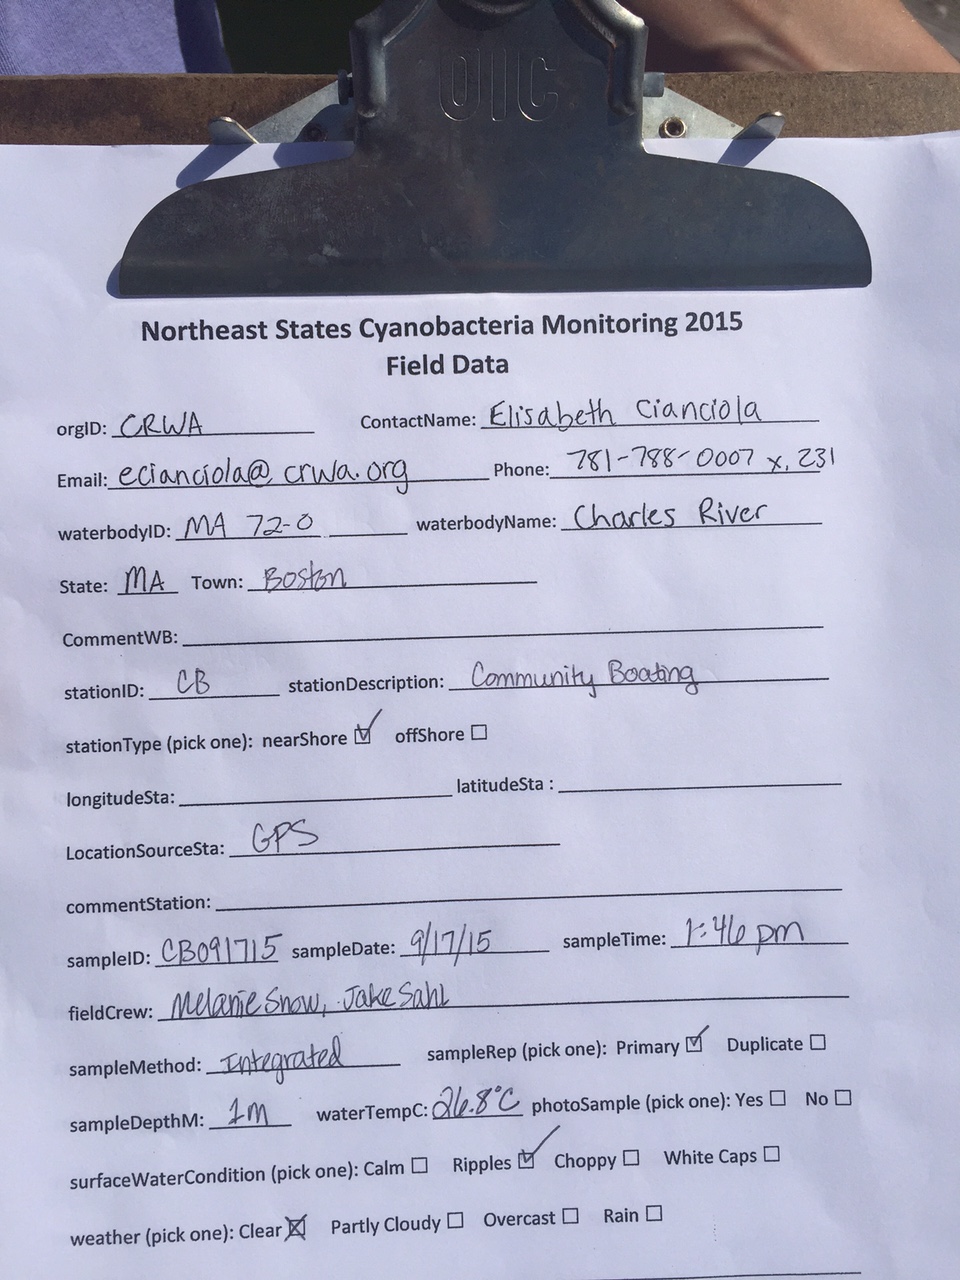 OIC
Northeast States Cyanobacteria Monitoring 2015
Field Data
orgID: CRWA ContactName: Elisabeth Cianciola
Email: ecianciola@crwa.org Phone: 781-788-0007 x. 231
waterbodyID: MA 72-0 waterbodyName: Charles River
State: MA Town: Boston
CommentWB:
stationID: CB stationDescription: Community Boating
stationType (pick one): nearShore ☑ offShore ☐
longitudeSta: latitudeSta :
LocationSourceSta: GPS
commentStation:
sampleID: CB091715 sampleDate: 9/17/15 sampleTime: 1:46 pm
fieldCrew: Melanie Snow, Jake Sahl
sampleMethod: Integrated sampleRep (pick one): Primary ☑ Duplicate ☐
sampleDepthM: 1m waterTempC: 26.8°C photoSample (pick one): Yes ☐ No ☐
surfaceWaterCondition (pick one): Calm ☐ Ripples ☑ Choppy ☐ White Caps ☐
weather (pick one): Clear ☒ Partly Cloudy ☐ Overcast ☐ Rain ☐